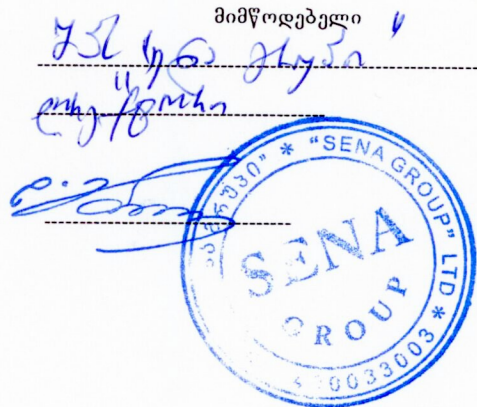 მიმწოდებელი
შპს "სენა გრუპი"
დირექტორი
"SENA GROUP" LTD
SENA
GROUP